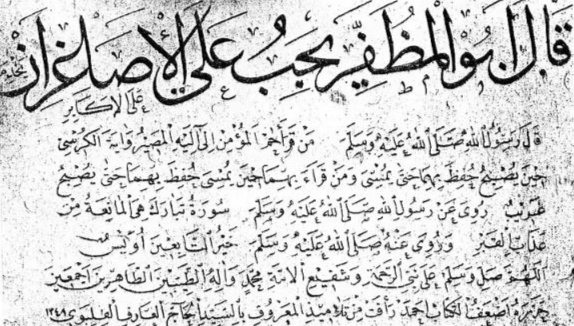 قال ابو المظفر يجب على الاصاغر ان
على الاكابر
قال رسول الله صلى الله عليه وسلم من قرأ حم المؤمن الى اليه المصير واية الكرسى
حين يصبح حفظ بهما حتى يمسى ومن قرأ بهما حين يمسى حفظ بهما حتى يصبح
غريب روى عن رسول الله صلى الله عليه وسلم سورة تبارك هى المانعة من
عذاب القبر وروى عنه صلى الله عليه وسلم خير التابعين اويس
اللهم صل وسلم على نبى الرحمة وشفيع الامة محمد واله الطيبين الطاهرين اجمعين
حرره اضعف الكتاب احمد رأفت من تلاميذ المعروف بالسيد الحاج العارف الفلبوى ١٢٤٨